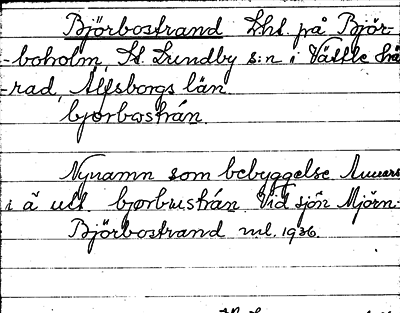 Björbostrand Lht. på Björ-
-boholm, St. Lundby s:n i Vättle hä
-rad, Älfsborgs län.
bjørbωstrán.
Nynamn som bebyggelse. Annars
i ä utt. bjørbωstrán. Vid sjön Mjörn.
Björbostrand ml. 1936.